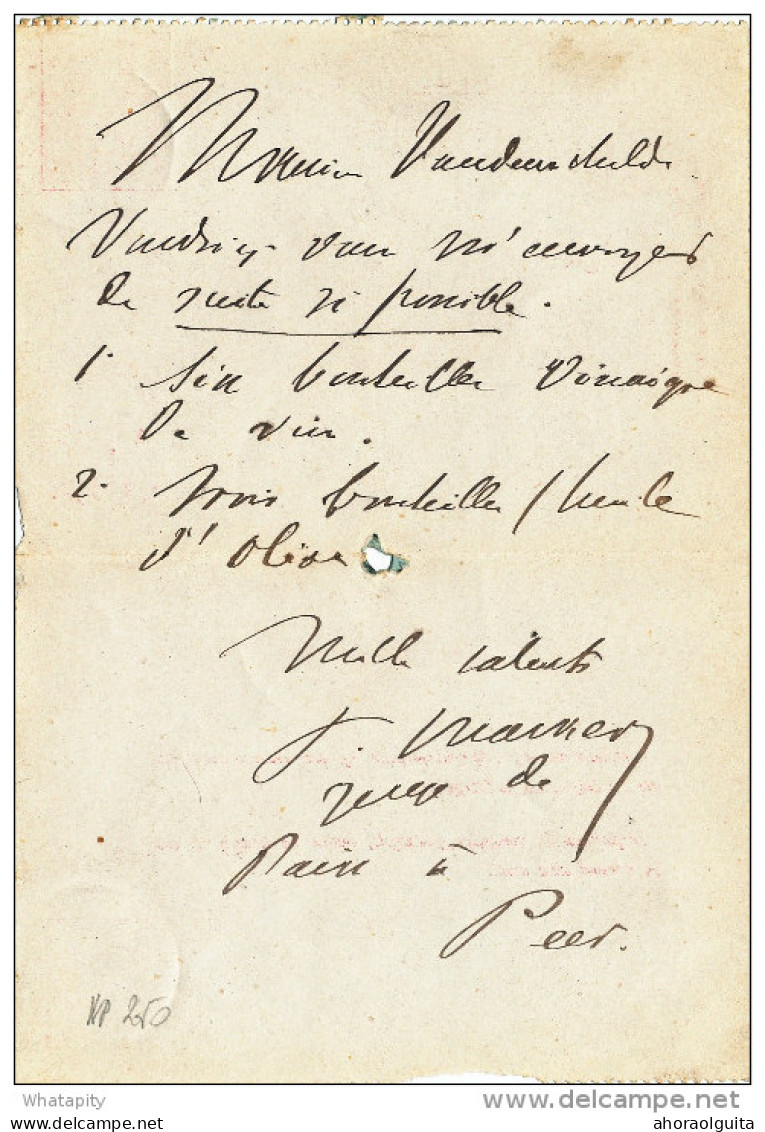 Monsieur Vandenschilde
Voudriez-vous m'envoyer
de suite si possible.
1. six bouteilles Vinaigre
de vin.
2. trois bouteilles / huile
d'olive
Mille saluts
juge de
Paix à
Peer.
NP 250
Whatapity
delcampe.net
ahoraolguita